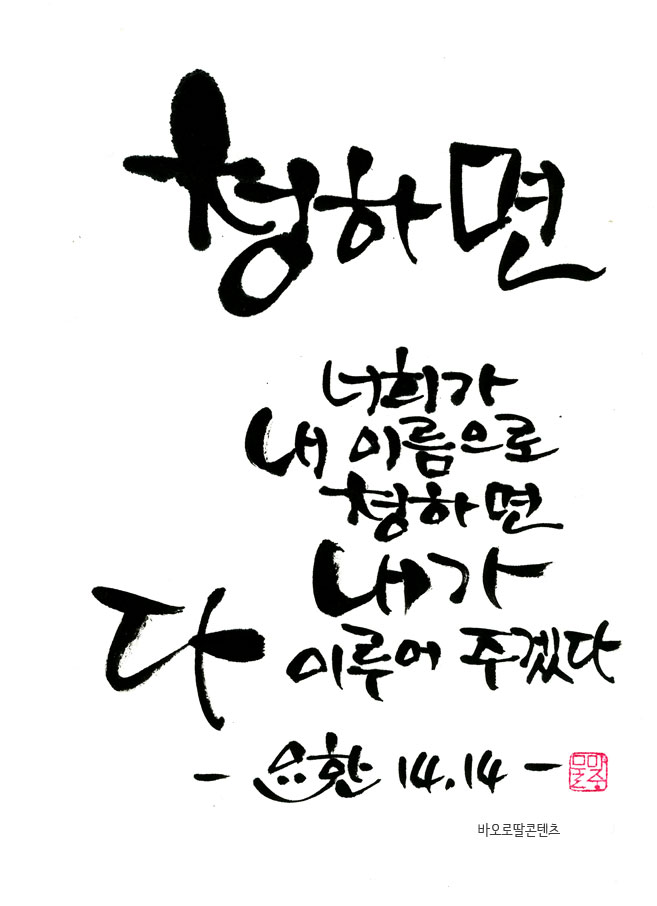 청하면
너희가
내 이름으로
청하면
내가
다 이루어 주겠다
- 요한 14.14 -
바오로딸콘텐츠